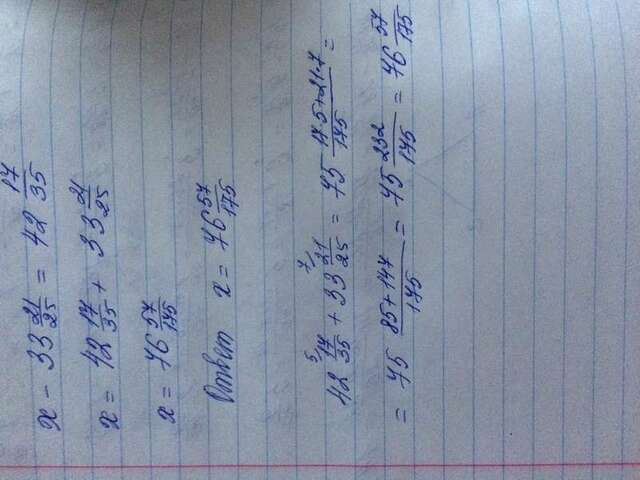 x - 33 21/25 = 42 17/35
x = 42 17/35 + 33 21/25
x = 76 57/175
Ответ x = 76 57/175
42 5/ 17/35 + 33 7/ 21/25 = 75 17·5+21·7/175 =
= 75 85+147/175 = 75 232/175 = 76 57/175